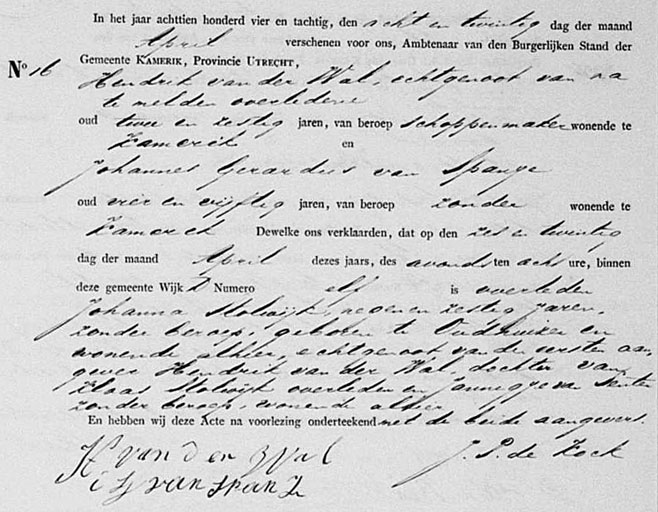 In het jaar achttien honderd vier en tachtig, den acht en twintig dag der maand
April verschenen voor ons, Ambtenaar van den Burgerlijken Stand der
No 16 Gemeente KAMERIK, Provincie UTRECHT,
Hendrik van der Wal, echtgenoot van na
te melden overledene
oud twee en zestig jaren, van beroep schoppenmaker wonende te
Kamerik en
Johannes Gerardus van Spanje
oud vier en vijftig jaren, van beroep zonder wonende te
Kamerik Dewelke ons verklaarden, dat op den zes en twintig
dag der maand April dezes jaars, des avonds ten acht ure, binnen
deze gemeente Wijk Numero elf is overleden
Johanna Stolwijk, negen en zestig jaren,
zonder beroep, geboren te Oudewater en
wonende alhier, echtgenoot van den eersten aan
gever Hendrik van der Wal, dochter van
Klaas Stolwijk overleden en Jannigje van
zonder beroep, wonende alhier
En hebben wij deze Acte na voorlezing onderteekend met de beide aangevers.
H van der Wal J. P. de Kock
van Span